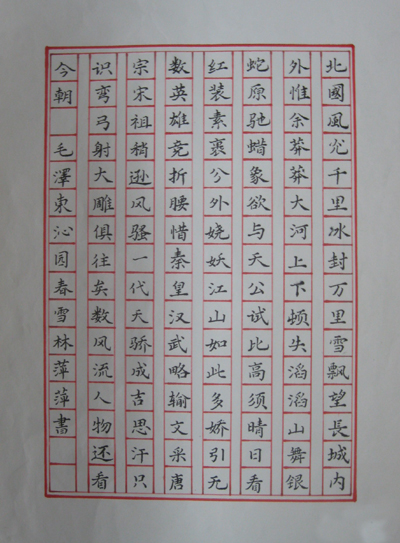 北國風光千里冰封万里雪飘望長城内
外惟余莽莽大河上下顿失滔滔山舞银
蛇原驰蜡象欲与天公试比高须晴日看
红装素裹兮外娆妖江山如此多娇引无
数英雄竞折腰惜秦皇汉武略输文采唐
宗宋祖稍逊风骚一代天骄成吉思汗只
识弯弓射大雕俱往矣数风流人物还看
今朝 毛澤東沁园春雪林萍萍書